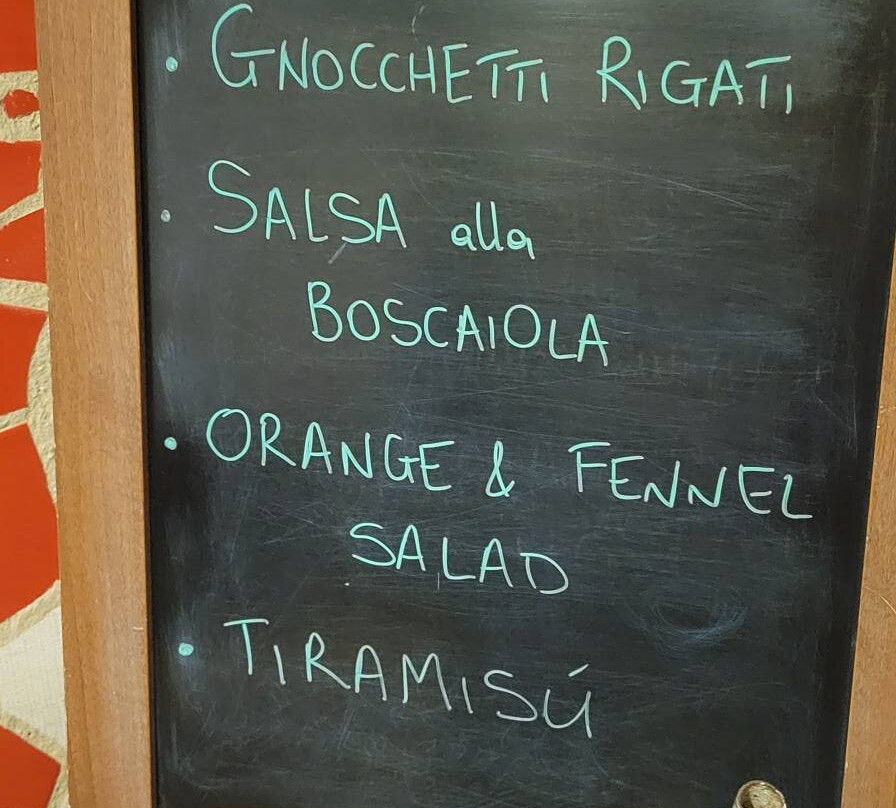 • GNOCCHETTI RIGATI
• SALSA alla
BOSCAIOLA
• ORANGE & FENNEL
SALAD
• TIRAMISÚ